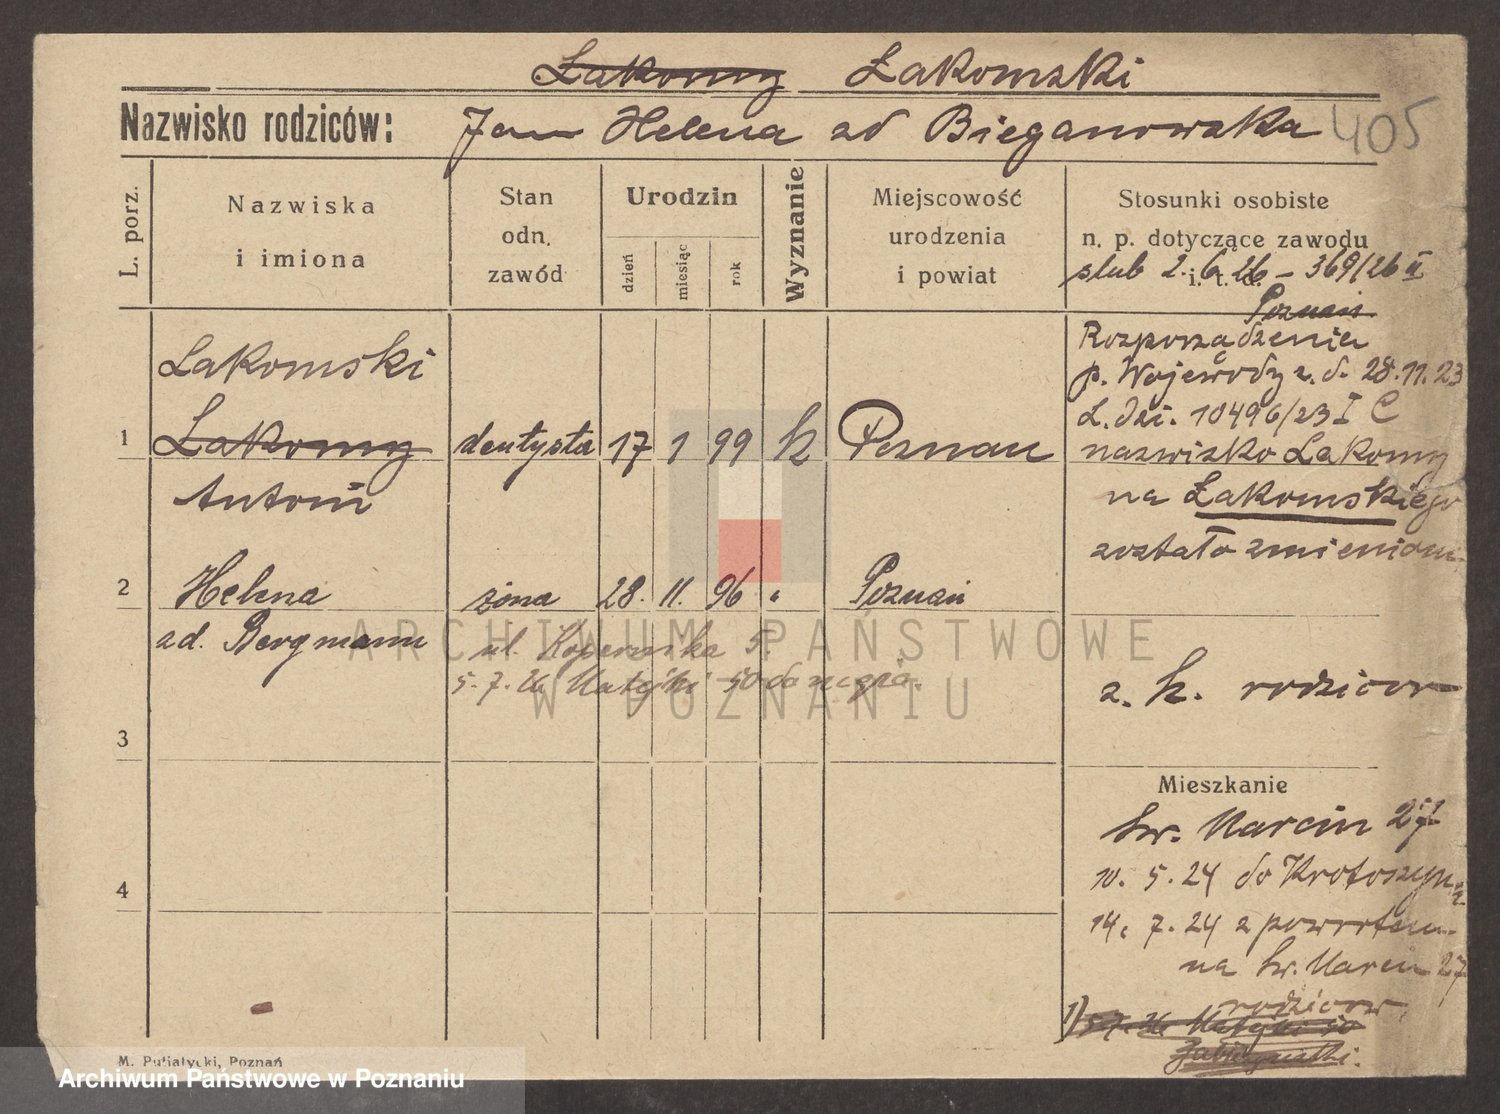 Łakomy Łakomski
Nazwisko rodziców: Jan Helena zd Bieganowska 405
L. porz.
Nazwiska
i imiona
Stan
odn.
zawód
Urodzin
dzień
miesiąc
rok
Wyznanie
Miejscowość
urodzenia
i powiat
Stosunki osobiste
n. p. dotyczące zawodu
i. t. d.
slub 2. 6. 26 - 369/26 II
Poznań
Łakomski
1 Łakomy dentysta 17 1 99 k Poznań
Antoni
2 Helena żona 28. 11. 96 " Poznań
zd. Bergmann
ul. Kopernika 5.
5. 7. 26 Matejki 50
3
4
Rozporządzenia
p. Wojewody z. d. 28. 11. 23
L. dz. 10496/23 I C
nazwisko Łakomy
na Łakomskiego
zostało zmienione
z. k. rodziców
Mieszkanie
Św. Marcin 27
10. 5. 24 do Krotoszyna
14. 7. 24 z powrotem
na Św. Marcin 27
rodziców
1) 5. 7. 26 Matejki 50
M. Putiatycki, Poznań
ARCHIWUM PAŃSTWOWE
W POZNANIU
Archiwum Państwowe w Poznaniu